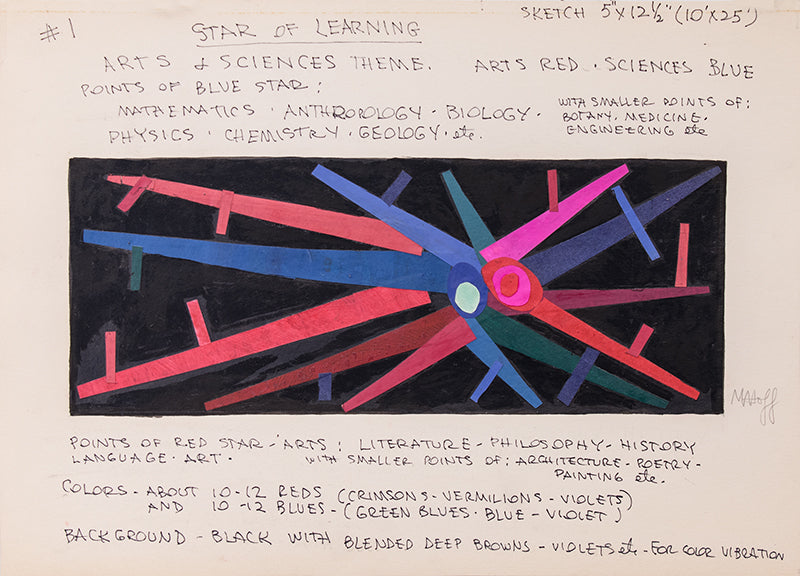 #1
STAR OF LEARNING
SKETCH 5"X12½" (10'X25')
ARTS & SCIENCES THEME. ARTS RED · SCIENCES BLUE
POINTS OF BLUE STAR:
MATHEMATICS · ANTHROPOLOGY · BIOLOGY ·
PHYSICS · CHEMISTRY · GEOLOGY · etc.
WITH SMALLER POINTS OF:
BOTANY. MEDICINE.
ENGINEERING etc
POINTS OF RED STAR - ARTS: LITERATURE - PHILOSOPHY - HISTORY
LANGUAGE · ART ·
WITH SMALLER POINTS OF: ARCHITECTURE - POETRY -
PAINTING etc.
COLORS - ABOUT 10-12 REDS (CRIMSONS - VERMILIONS - VIOLETS)
AND 10-12 BLUES - (GREEN BLUES · BLUE - VIOLET)
BACKGROUND - BLACK WITH BLENDED DEEP BROWNS - VIOLETS etc - FOR COLOR VIBRATION